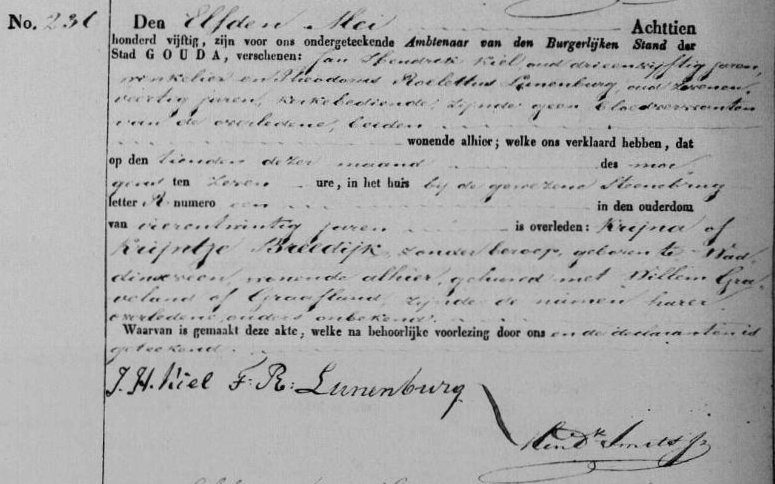 No. 236 Den Elfden Mei Achttien
honderd vijftig, zijn voor ons ondergeteekende Ambtenaar van den Burgerlijken Stand der
Stad GOUDA, verschenen: Jan Hendrik Kiel oud drieenvijftig jaren,
winkelier en Theodorus Roelettus Lunenburg oud zevenen
veertig jaren, kerkebediende, zijnde geen bloedverwanten
van de overledene, beiden
wonende alhier; welke ons verklaard hebben, dat
op den tienden dezer maand des mor
gens ten zeven ure, in het huis bij de gewezene Steenebrug
letter R numero een in den ouderdom
van vierentwintig jaren is overleden: Krijna of
Krijntje Breedijk, zonder beroep, geboren te Wad
dinxveen, wonende alhier, gehuwd met Willem Gra
veland of Graafland, zijnde de namen harer
overledene ouders onbekend.
Waarvan is gemaakt deze akte, welke na behoorlijke voorlezing door ons en de declaranten is
geteekend.
J. H. Kiel F. R: Lunenburg
Smits